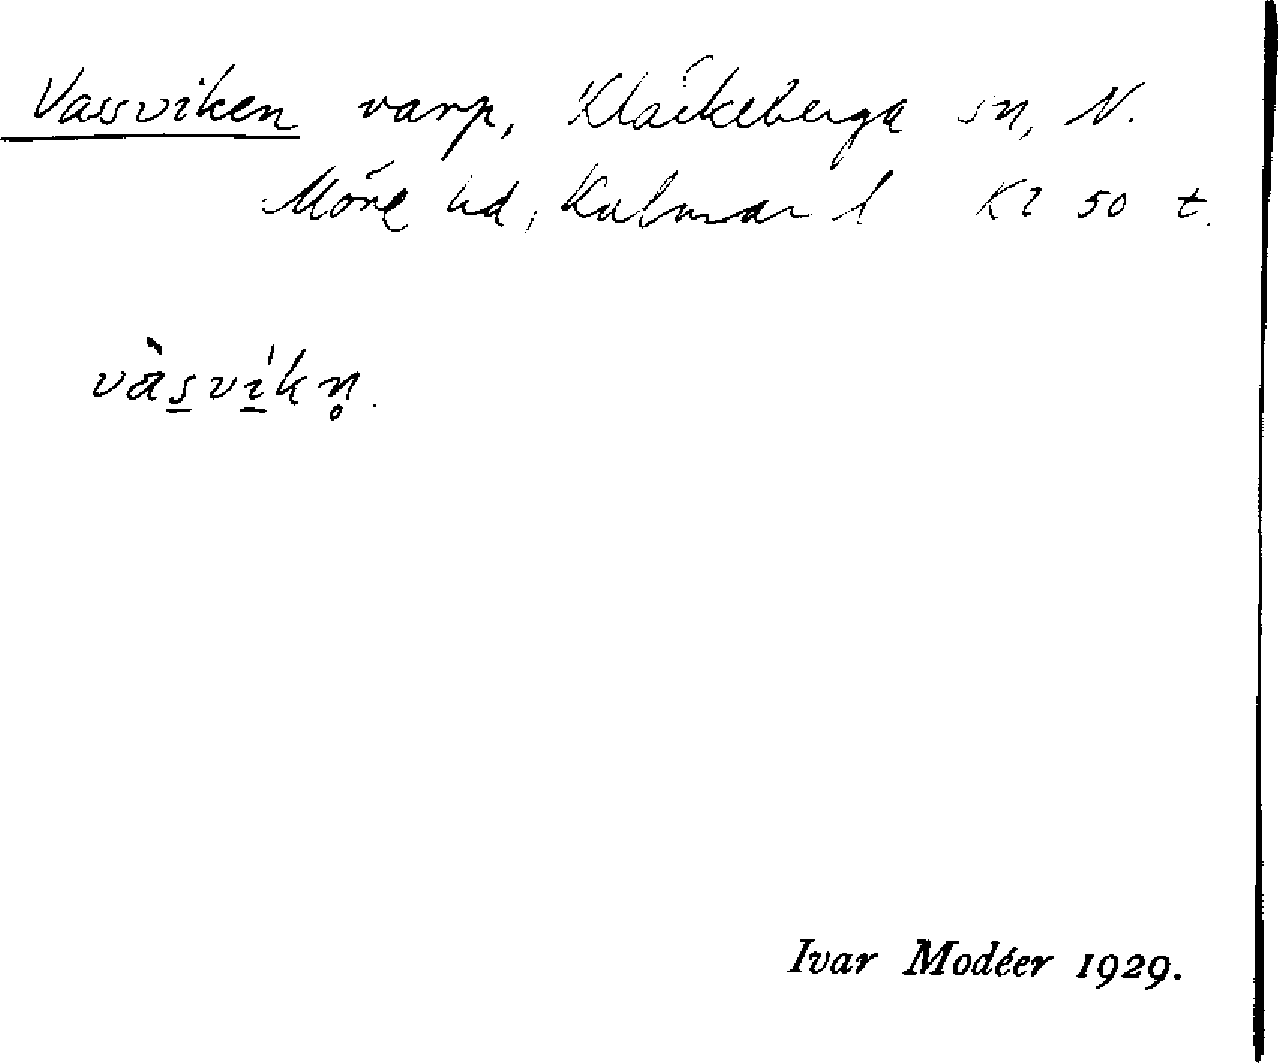 Vassviken varp, Kläckeberga sn, N.
Möre hd, Kalmar l Kl 50 t.
vàs̲vi̲̍kn̥.
Ivar Modéer 1929.